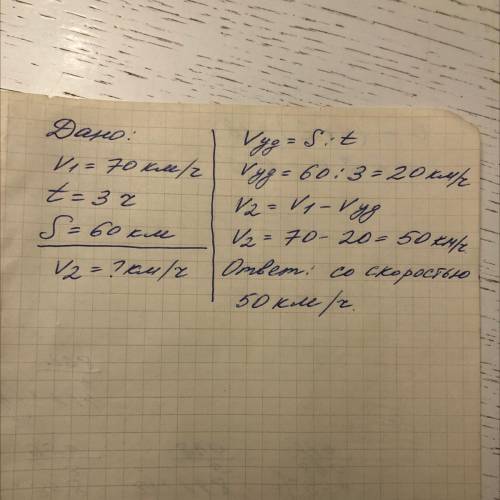 Дано:
V1 = 70 км/ч
t = 3 ч
S = 60 км
V2 = ? км/ч
Vуд = S : t
Vуд = 60 : 3 = 20 км/ч
V2 = V1 - Vуд
V2 = 70 - 20 = 50 км/ч.
Ответ: со скоростью
50 км/ч.